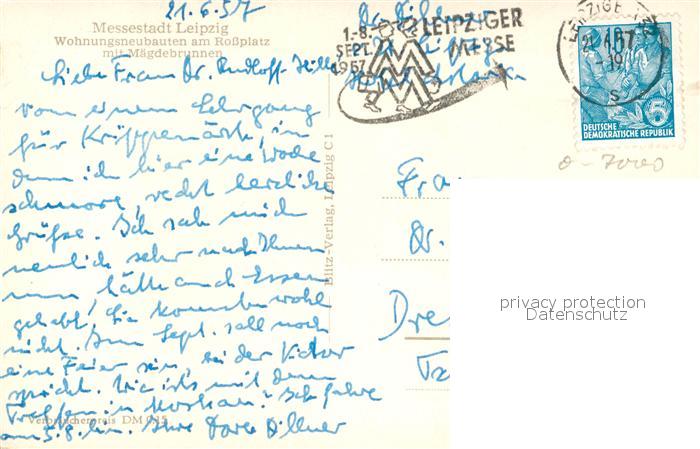 21.6.57
Messestadt Leipzig
Wohnungsneubauten am Roßplatz
mit Mägdebrunnen
Liebe Frau Dr. Rudloff-Hille
von einem Lehrgang
für Krippenärzte, in
dem ich hier eine Woche
schmore, recht herzliche
Grüße. Ich sah mich
neulich sehr nach Ihnen
um, hätte auch Essen
gehabt, Sie konnten wohl
nicht. Im Sept. soll noch
eine Feier sein, bei der
spricht. Wie ists mit dem
Treffen in Ich fahre
am 5.8. hin. Ihre Dore
Verbraucherpreis DM 0,15
Blitz-Verlag, Leipzig C 1
Dr.
1.-8.
SEPT.
1957
LEIPZIGER
MESSE
MM
LEIPZIG
21.6.57
-19
S
DEUTSCHE
DEMOKRATISCHE REPUBLIK
5
Frau
Dr.
Dre
privacy protection
Datenschutz